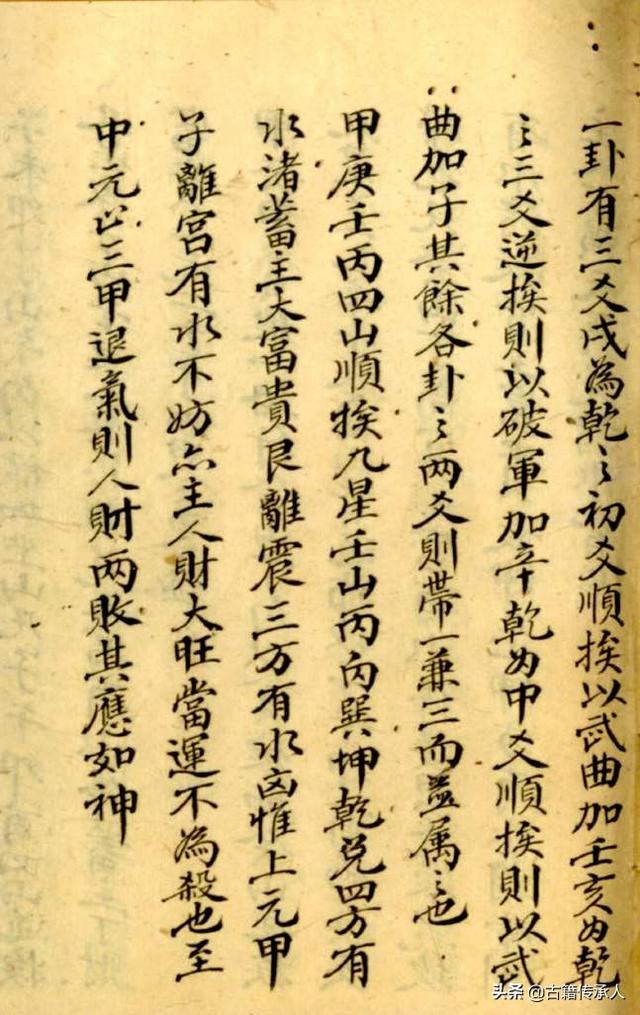 一卦有三爻戌為乾〻初爻順挨以武曲加壬亥為乾
〻三爻逆挨則以破軍加辛乾為中爻順挨則以武
曲加子其餘各卦〻兩爻則帶一兼三而並属〻也
甲庚壬丙四山順挨九星壬山丙向巽坤乾兌四方有
水渚蓄主大富貴艮離震三方有水凶惟上元甲
子離宮有水不妨亦主人財大旺當運不為殺也至
中元以三甲退氣則人財兩敗其應如神
头条@古籍传承人